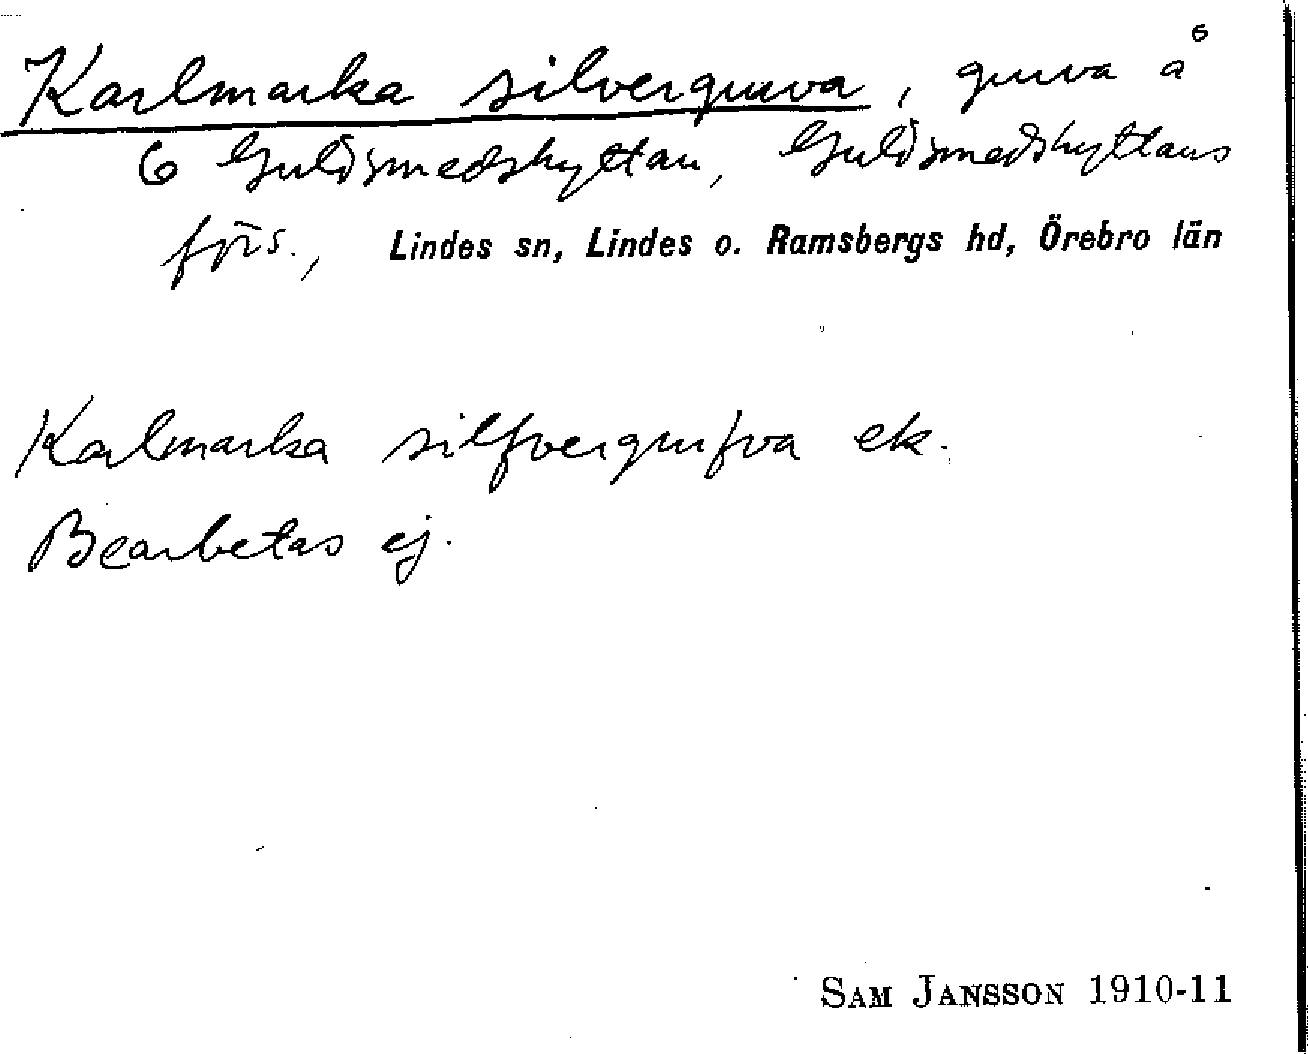 Karlmarka silvergruva, gruva å
6 Guldsmedshyttan, Guldsmedshyttans
förs., Lindes sn, Lindes o. Ramsbergs hd, Örebro län
Kalmarka silfvergrufva ek.
Bearbetas ej.
SAM JANSSON 1910-11